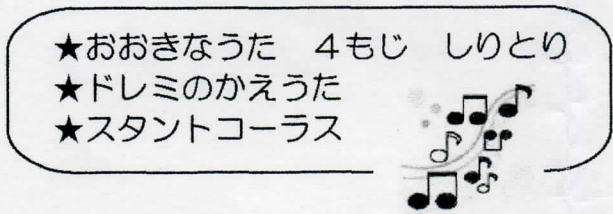 ★おおきなうた　４もじ　しりとり
★ドレミのかえうた
★スタントコーラス